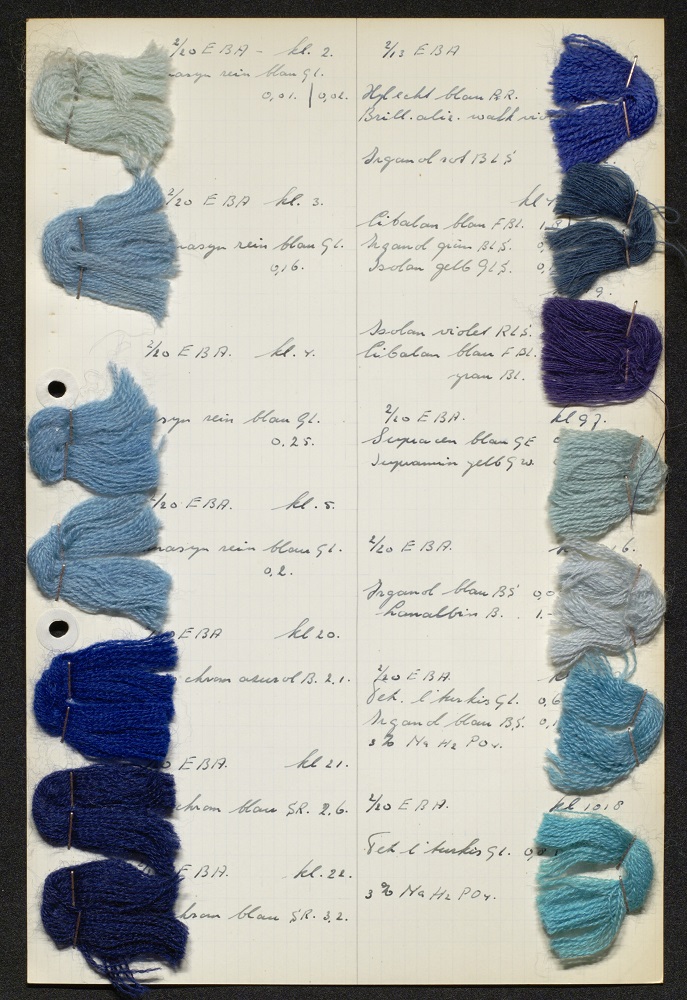 2/20 EBA - kl. 2.
rein blau GL.
0,01. | 0,02.
2/20 EBA kl. 3.
rein blau GL.
0,16.
2/20 EBA. kl. 4.
rein blau GL.
0,25.
2/20 EBA kl. 5.
rein blau GL.
0,2.
EBA kl 20.
chrom azurol B. 2.1.
EBA. kl 21.
chrom blau SR. 2,6.
EBA. kl. 22.
chrom blau SR. 3,2.
2/13 EBA
blau RR.
Brill. aliz. walk
Irganol rot BLS
kl
Cibalan blau FBL.
Irganol grün BLS. 0,
Isolan gelb GLS. 0,
9.
Isolan violet RLS.
Cibalan blau FBL.
grau BL.
2/20 EBA. kl 97.
Supracen blau GE
Supramin gelb GW.
2/20 EBA. 6.
Irganol blau BS 0,0
Lanalbin B. 1.-
2/20 EBA.
Tek. l'turkis GL. 0,6
Irganol blau BS. 0,1
3% Na H2 PO4.
2/20 EBA. kl 1018
Tek l'turkis GL.
3% Na H2 PO4.